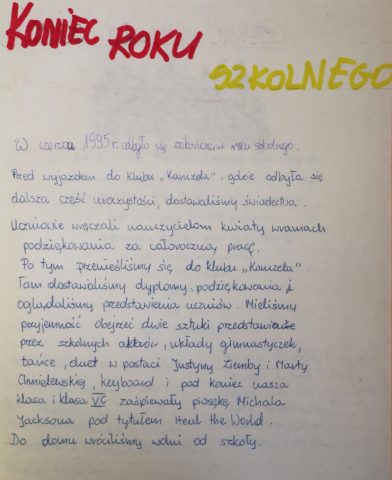 KONIEC ROKU
SZKOLNEGO
W czerwcu 1995 r. odbyło się zakończenie roku szkolnego.
Przed wyjazdem do klubu „Karuzela", gdzie odbyła się
dalsza część uroczystości, dostawaliśmy świadectwa.
Uczniowie wręczali nauczycielom kwiaty wramach
podziękowania za całoroczną pracę.
Po tym przenieśliśmy się do klubu „Karuzela".
Tam dostawaliśmy dyplomy, podziękowania i
oglądaliśmy przedstawienia uczniów. Mieliśmy
przyjemność obejrzeć dwie sztuki przedstawione
przez szkolnych aktorów, układy gimnastyczek,
tańce, duet w postaci Justyny Ziemby i Marty
Chmielewskiej, keyboard i pod koniec nasza
klasa i klasa VC zaśpiewały piosękę Michala
Jacksona pod tytułem Heal the World.
Do domu wróciliśmy wolni od szkoły.